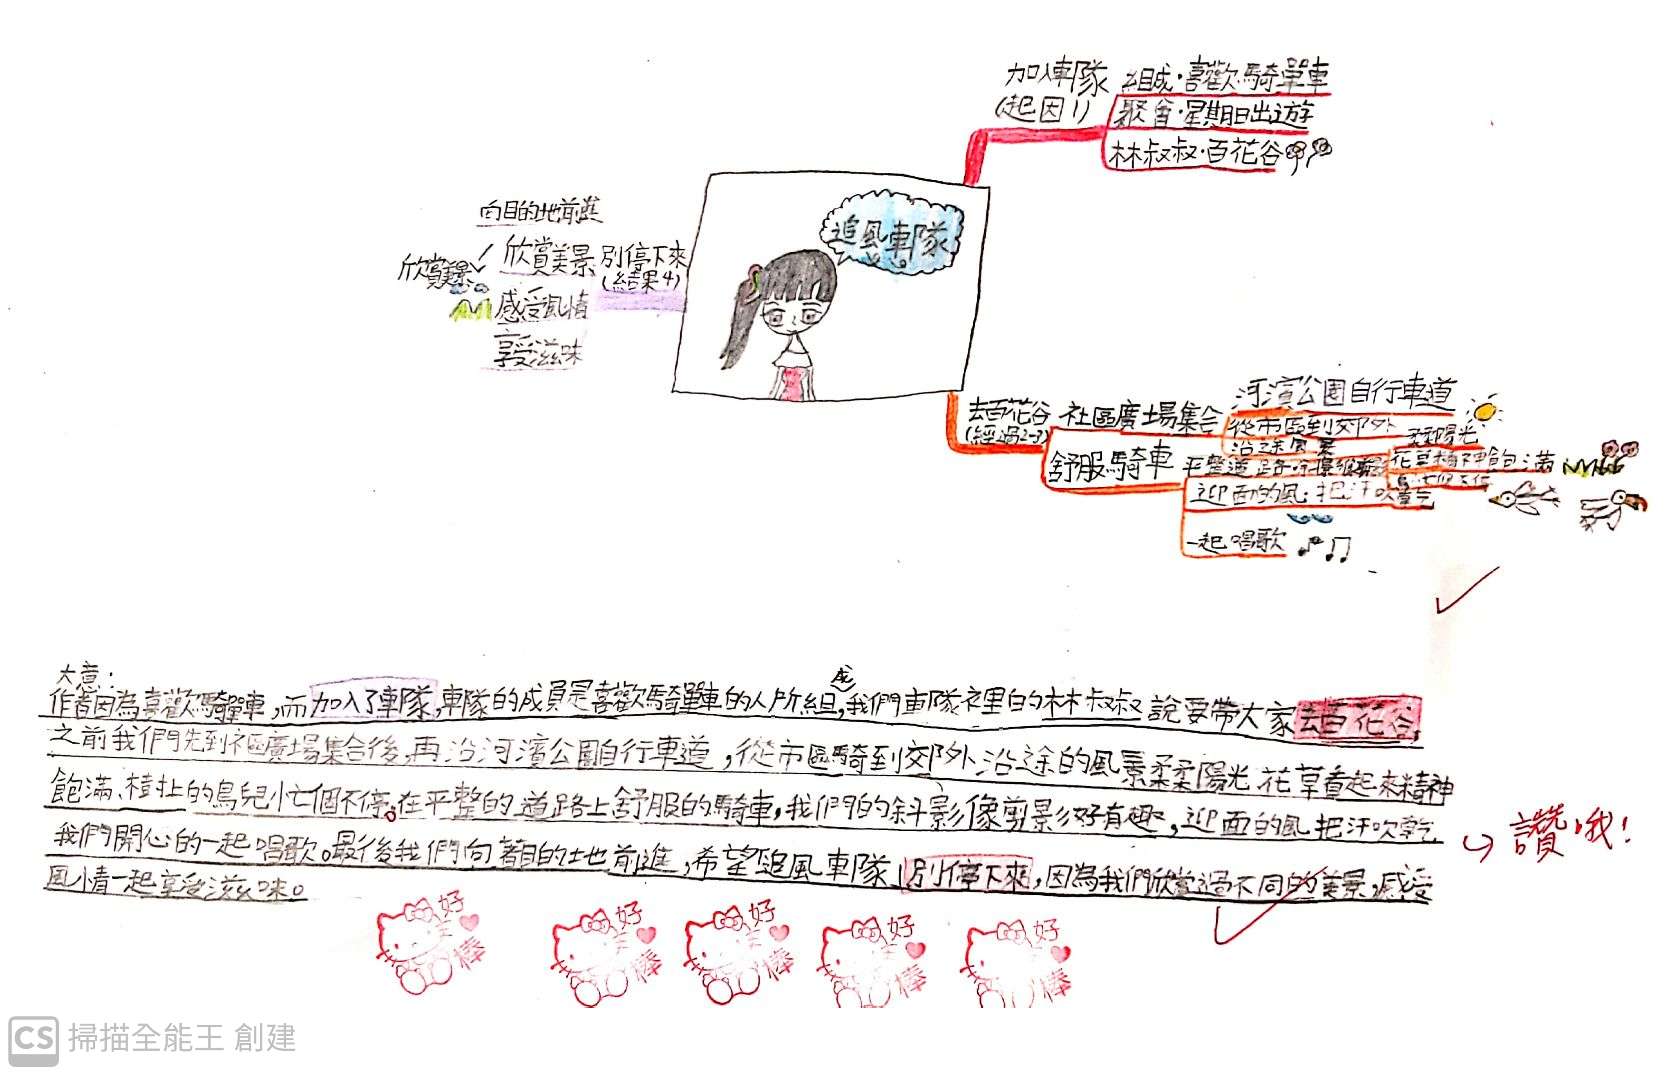 加入車隊
(起因1)
組成·喜歡騎單車
聚會·星期日出遊
林叔叔·百花谷
追風車隊
向目的地前進
欣賞美景
別停下來
(結果4)
欣賞美景
感受風情
享受滋味
去百花谷
(經過2-3)
社區廣場集合
河濱公園自行車道
從市區到郊外
沿途風景
柔柔陽光
舒服騎車
平整道路
迎面的風·把汗吹乾
一起唱歌
大意:
作者因為喜歡騎單車,而加入了車隊,車隊的成員是喜歡騎單車的人所組成,我們車隊裡的林叔叔說要帶大家去百花谷,
之前我們先到社區廣場集合後,再沿河濱公園自行車道,從市區騎到郊外沿途的風景柔柔陽光、花草看起來精神
飽滿、樹上的鳥兒忙個不停。在平整的道路上舒服的騎車,我們的斜影像剪影好有趣,迎面的風把汗吹乾
我們開心的一起唱歌。最後我們向著目的地前進,希望追風車隊別停下來,因為我們欣賞過不同的美景,感受
風情一起享受滋味。
讚哦!
好棒
好棒
好棒
好棒
好棒
CS 掃描全能王 創建